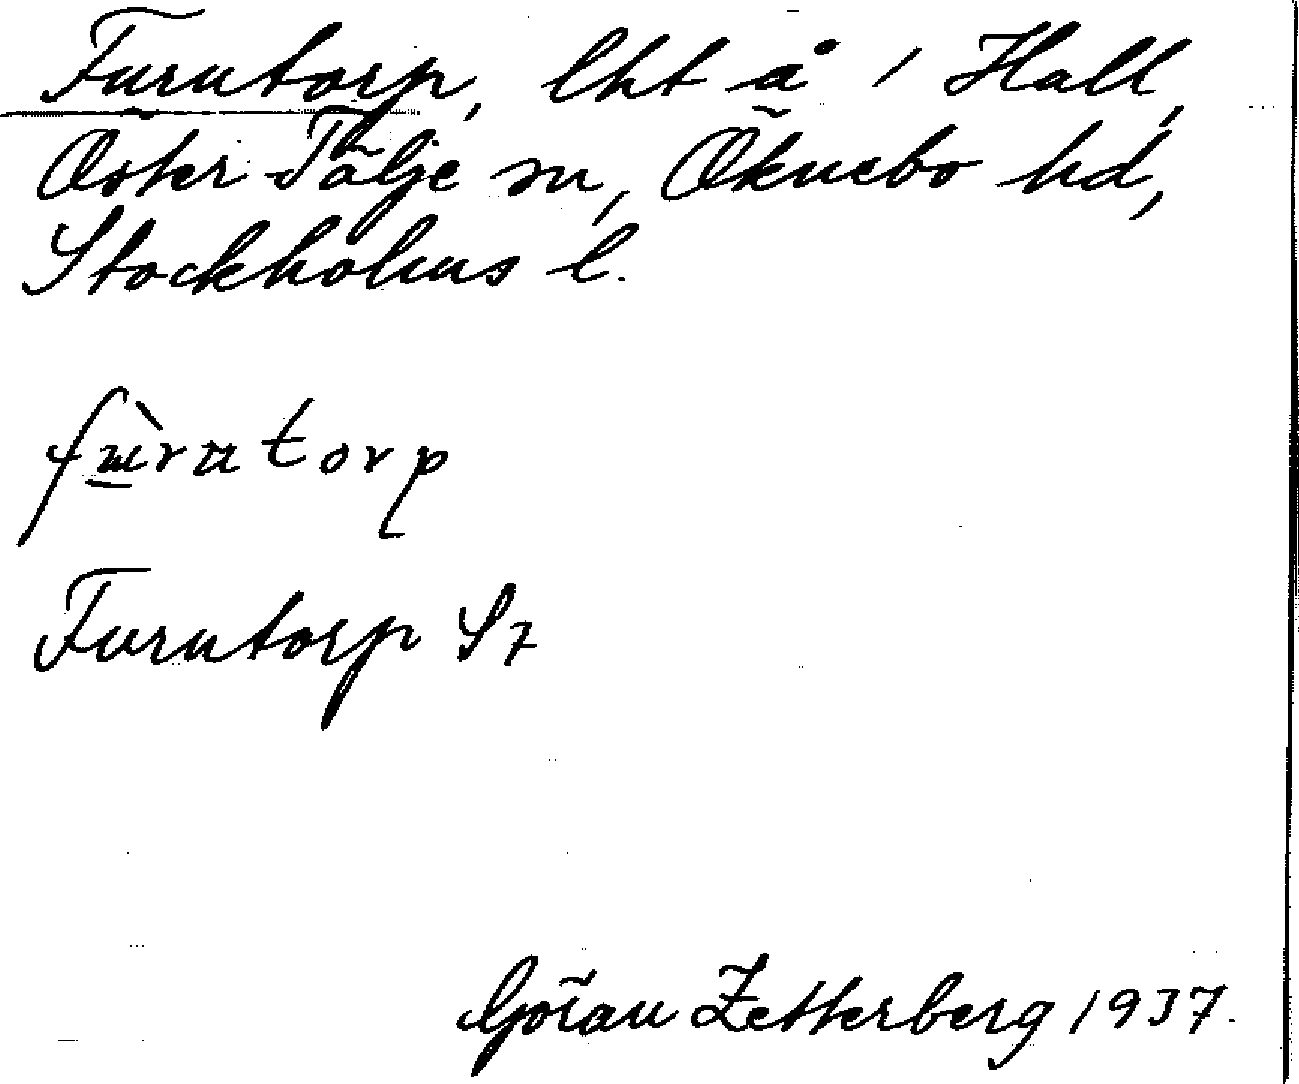 Furutorp, lht å 1 Hall,
Öster Tälje sn, Öknebo hd,
Stockholms l.
fù̲rutorp
Furutorp St
Göran Zetterberg 1937.